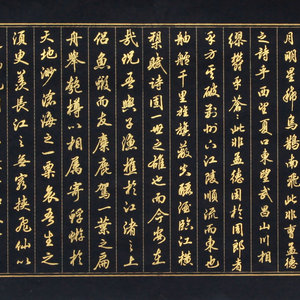 月明星稀烏鵲南飛此非曹孟德
之詩乎西望夏口東望武昌山川相
繆鬱乎蒼蒼此非孟德困於周郎者
乎方其破荊州下江陵順流而東也
舳艫千里旌旗蔽天釃酒臨江橫
槊賦詩固一世之雄也而今安在
哉況吾與子漁樵於江渚之上
侶魚蝦而友麋鹿駕一葉之扁
舟舉匏樽以相屬寄蜉蝣於
天地渺滄海之一粟哀吾生之
須臾羨長江之無窮挾飛仙以